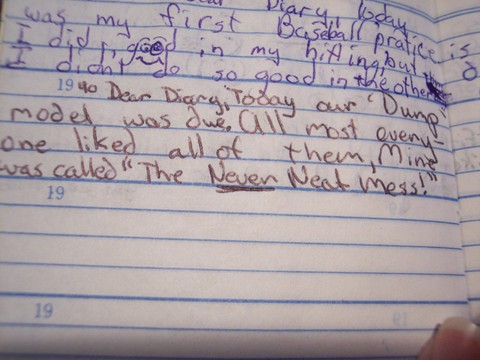 Dear Diary, Today
was my first Baseball pratice
I did good in my hiting, but
I didnt do so good in the other
is
19 90 Dear Diary, Today our 'Dump'
model was due. All most every-
one liked all of them, Mine
was called "The Never Neat Mess!"
19
19